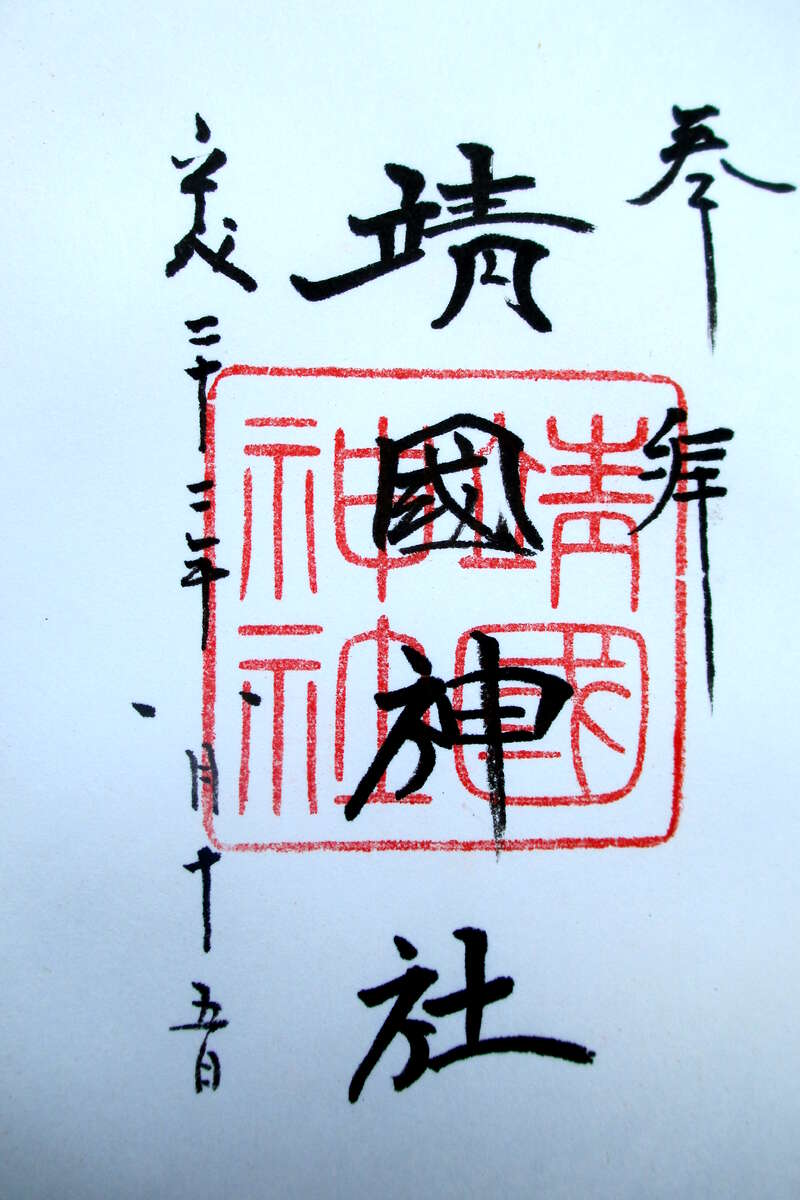 奉拝
靖國神社
平成二十二年八月十五日
靖國
神社